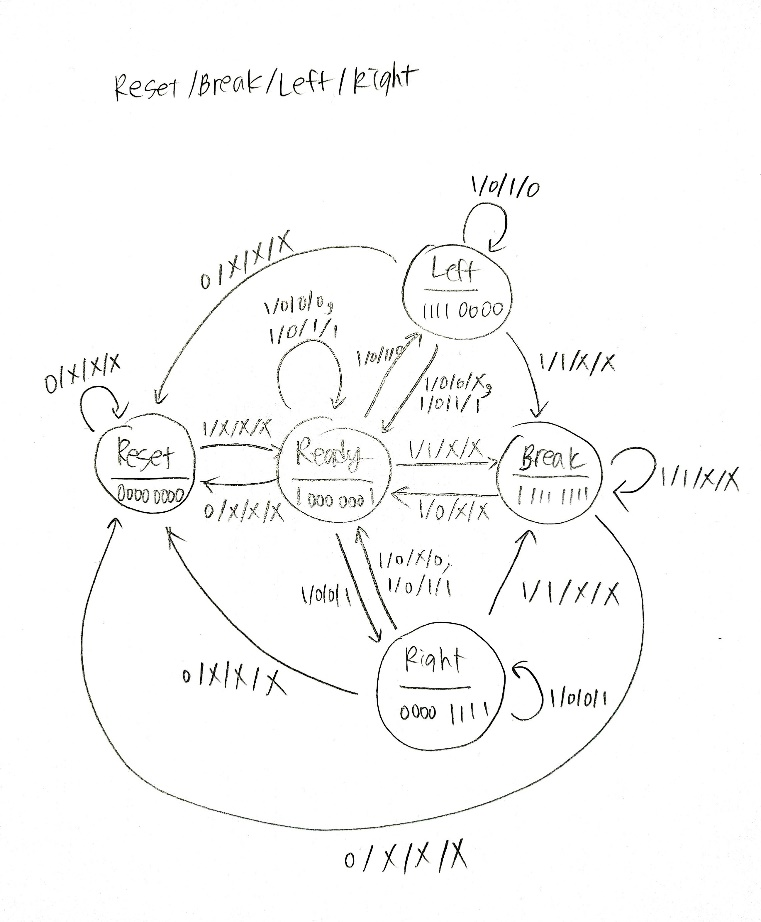 Reset/Break/Left/Right
1/0/1/0
0/X/X/X
Left
1111 0000
1/0/0/0,
1/0/1/1
1/0/1/0
1/1/X/X
0/X/X/X
1/0/0/X,
1/0/1/1
1/X/X/X
Reset
0000 0000
Ready
1000 0001
1/1/X/X
Break
1111 1111
1/1/X/X
0/X/X/X
1/0/X/X
1/0/0/1
1/0/X/0,
1/0/1/1
1/1/X/X
0/X/X/X
Right
0000 1111
1/0/0/1
0/X/X/X